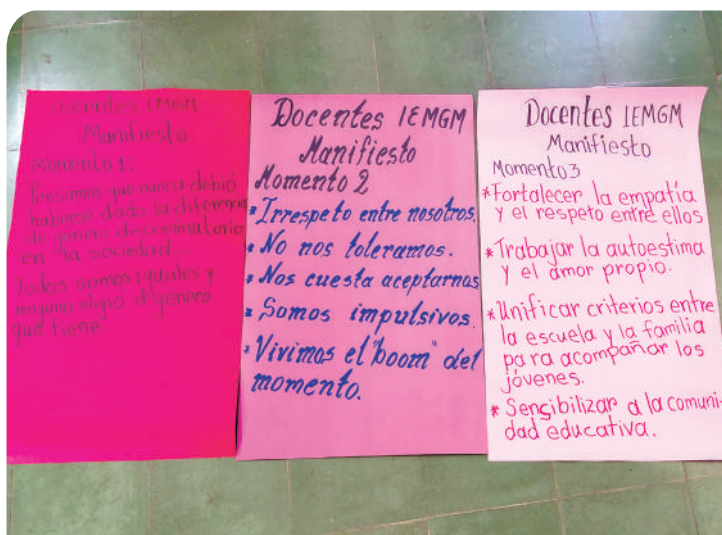 Docentes IEMGM
Manifiesto
Momento 1:
Pensamos que nunca debió
haberse dado la diferencia
de género discriminatorio
en la sociedad...
Todos somos iguales y
ninguno eligió el género
que tiene
Docentes IEMGM
Manifiesto
Momento 2
* Irrespeto entre nosotros.
* No nos toleramos.
* Nos cuesta aceptarnos
* Somos impulsivos.
* Vivimos el "boom" del
momento.
Docentes IEMGM
Manifiesto
Momento 3
* Fortalecer la empatía
y el respeto entre ellos
* Trabajar la autoestima
y el amor propio.
* Unificar criterios entre
la escuela y la familia
para acompañar los
jóvenes.
* Sensibilizar a la comuni-
dad educativa.